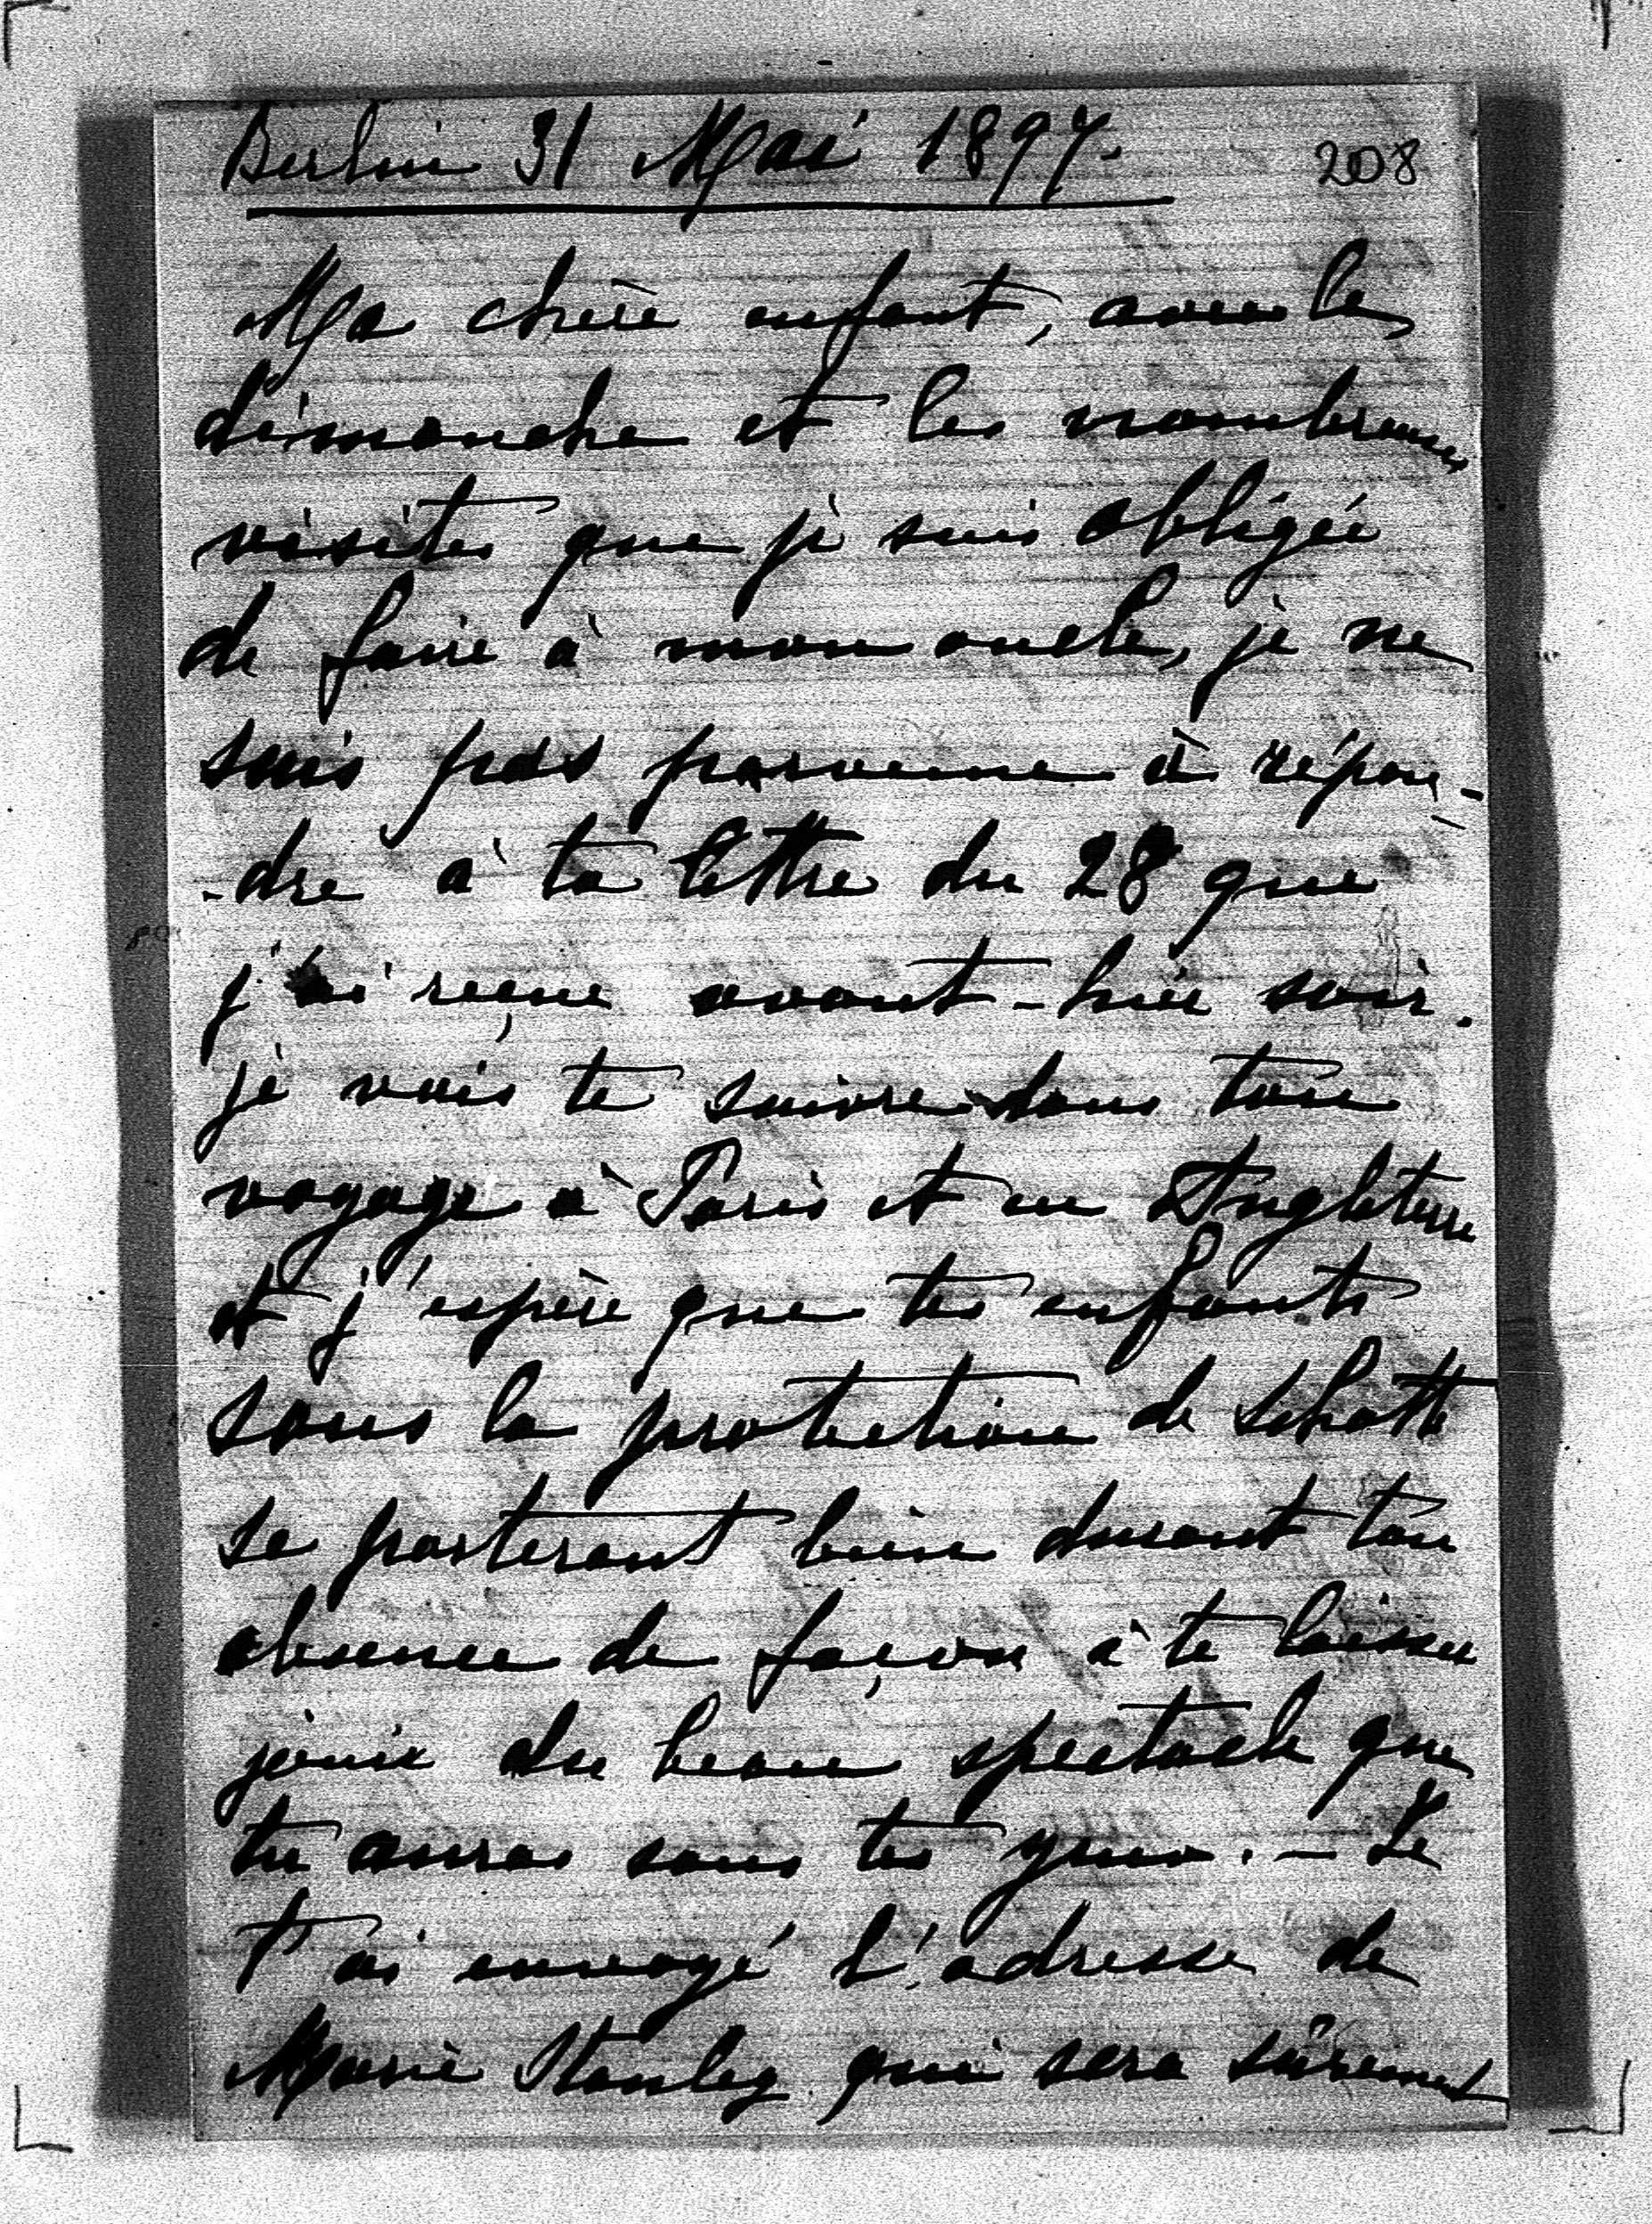 Berlin 31 Mai 1897.
208
Ma chère enfant, avec le
dimanche et les nombreuses
visites que je suis obligée
de faire à mon oncle, je ne
suis pas parvenue à répon-
-dre à ta lettre du 28 que
j'ai reçue avant-hier soir.
je vais te suivre dans ton
voyage à Paris et en Angleterre
et j'espère que tes enfants
sous la protection de Schott
se porteront bien durant ton
absence de façon à te laisser
jouir du beau spectacle que
tu auras sous tes yeux. - Je
t'ai envoyé l'adresse de
Marie Stanley qui sera sûrement